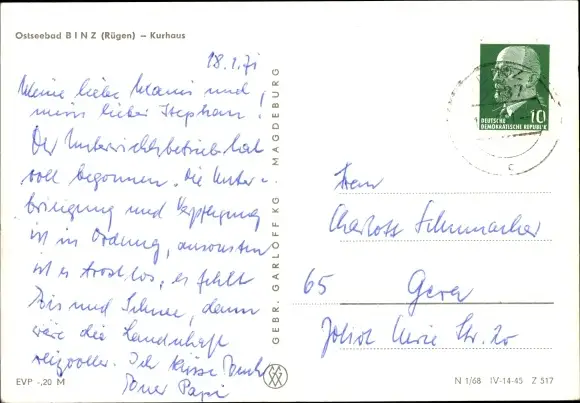 Ostseebad BINZ (Rügen) – Kurhaus
18.1.71
Meine liebe Mami und
mein lieber Stephan!
Der Unterrichtsbetrieb hat
voll begonnen. Die Unter-
bringung und Verpflegung
ist in Ordnung, ansonsten
ist es trostlos, es fehlt
Eis und Schnee, dann
wäre die Landschaft
reizvoller. Ich küsse Euch
Euer Papi
EVP -,20 M
GEBR. GARLOFF KG MAGDEBURG
10
DEUTSCHE
DEMOKRATISCHE REPUBLIK
c
Frau
Charlott Schumacher
65 Gera
Joliot Curie Str. 20
N 1/68 IV-14-45 Z 517